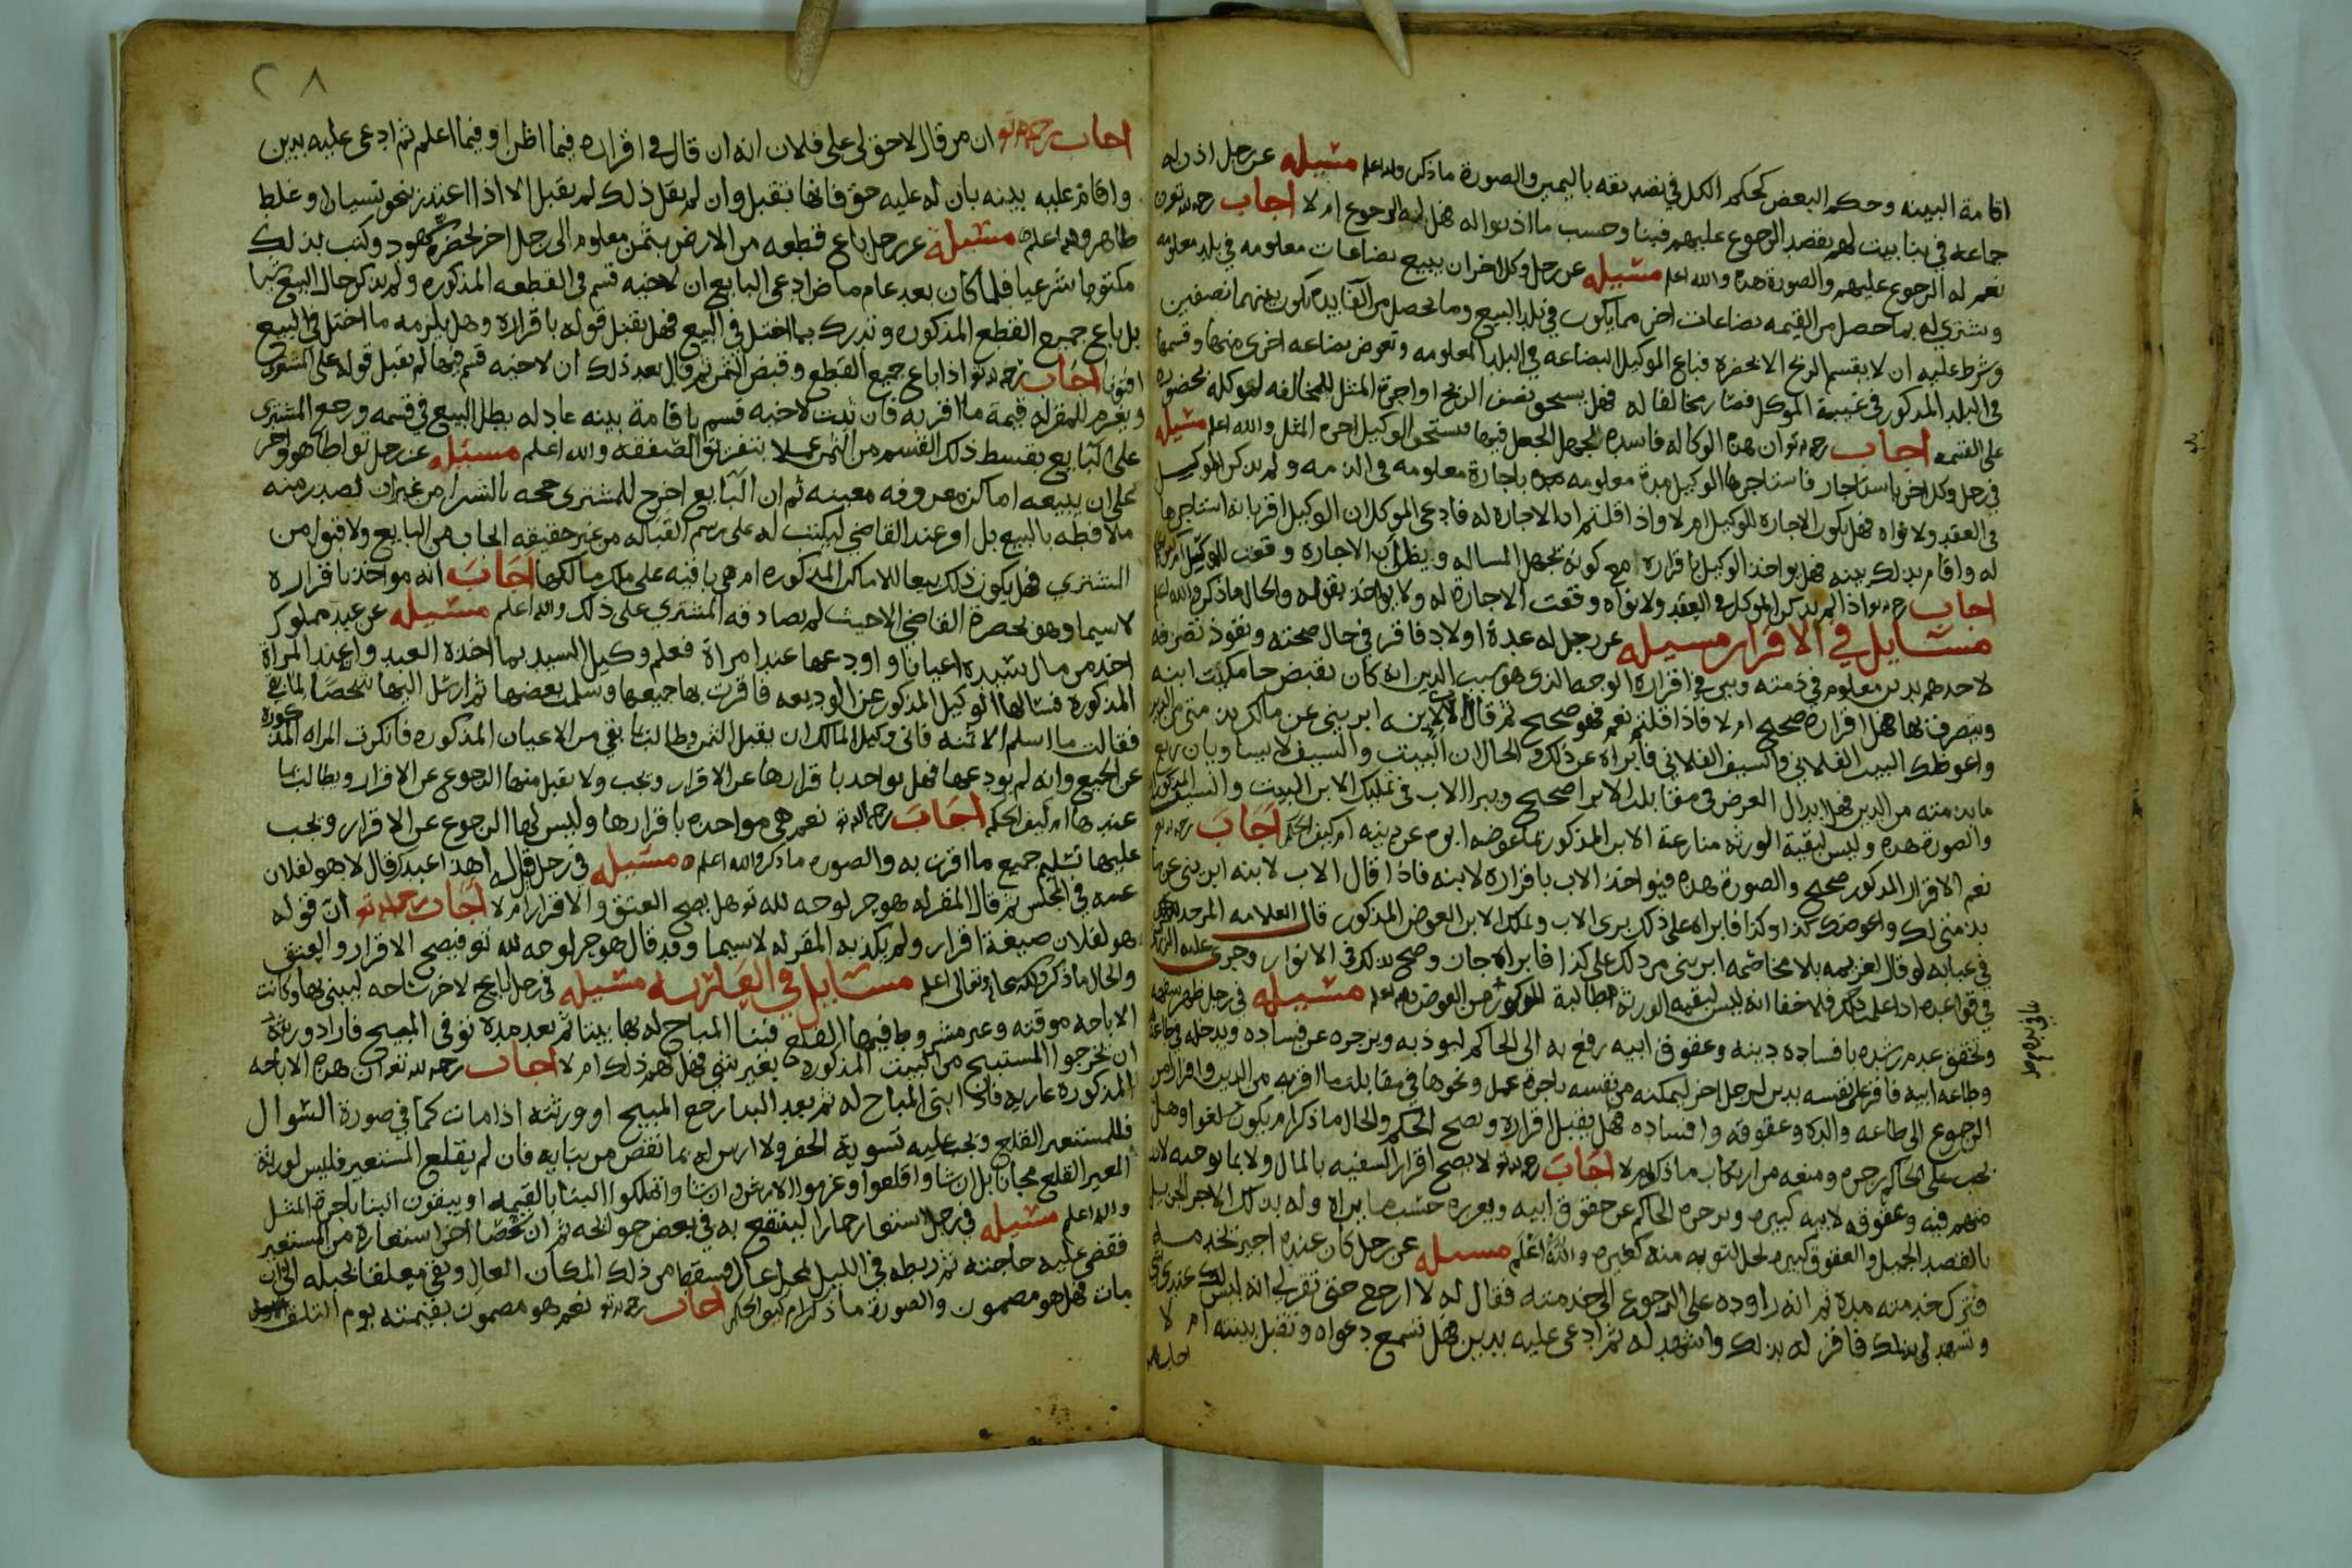 اقامة البينه وحكم البعض كحكم الكل في تصديقه باليمين والصورة ما ذكر والله اعلم مسئيله عن رجل اذن له
جماعه في بنا بيت لهم بقصد الرجوع عليهم فبنا وحسب ما اذنوا له فهل له الرجوع ام لا اجاب رحمه الله
نعم له الرجوع عليهم والصورة هذه والله اعلم مسئيله عن رجل وكل اخر ان يبيع بضاعات معلومه في بلد معلومه
ويشتري له بما حصل من القيمه بضاعات اخر مما يكون في بلد البيع وما يحصل من الفايده يكون بينهما نصفين
وشرط عليه ان لا يقسم الربح الا بحضره فباع الموكيل البضاعه في البلد المعلومه وتعوض بضاعه اخرى منها وقسمها
في البلد المذكور في غيبة الموكل فصار مخالفا له فهل يستحق نصف الربح او اجرة المثل للمخالفه لموكله بحضوره
على القسمه اجاب رحمه ان هذه الوكاله فاسده لجهل الجعل فيها فيستحق الوكيل اجره المثل والله اعلم مسئيله
في رجل وكل اخر باستاجار فاستاجرها الوكيل مدة معلومه باجارة معلومه في الذمه ولم يذكر الموكيل
في العقد ولا نواه فهل يكون الاجاره للوكيل ام لا واذا قلتم ان الاجاره له فادعى الموكل ان الوكيل اقر بانه استاجرها
له واقام بذلك بينه فهل يواخذ الوكيل باقراره مع كونه يجهل المساله ويظن ان الاجاره وقعت للموكيل
اجاب رحمه اذا لم يذكر الموكل في العقد ولا نواه وقعت الاجاره له ولا يواخذ بقوله والحال ما ذكر والله اعلم
مسايل في الاقرار مسيله عن رجل له عدة اولاد فاقر في حال صحته ونفوذ تصرفه
لاحدهم بدين معلوم في ذمته وبين في اقراره الوجه الذي هو سبب الدين انه كان يقبض جامكية ابنه
ويتصرف بها فهل اقراره صحيح ام لا فاذا قلتم نعم فهو صحيح ثم قال لابنه ابريني عن مالك بذمتي من الدين
واعوظك البيت الفلاني والسيف الفلاني فابراه عن ذلك والحال ان البيت والسيف لا يساويان ربع
ما بذمته من الدين فهل ابدال العرض في مقابلة الابرا صحيح ويبرا الاب في تمليك الابن البيت والسيف المذكور
والصورة هذه وليس لبقية الورثه منازعة الابن المذكور بما عوضه ابوه عن دينه ام كيف الحكم اجاب رحمه
نعم الاقرار المذكور صحيح والصورة هذه فيواخذ الاب باقراره لابنه فاذا قال الاب لابنه ابريني عن ما
بذمتي لك واعوضك كذا وكذا فابراه على ذلك برى الاب وتملك الابن العوض المذكور قال العلامه المزجد
في عبابه لو قال لغريمه بلا مخاصمه ابريني من ذلك على كذا فابراه جاز وصح بذلك في الانوار وجرى عليه
في قواعده اذا علم ذلك فلا خفا انه ليس لبقيه الورثه مطالبة المذكور من العوض والله اعلم مسئيله في رجل ظهر سفهه
وتحقق عدم رشده بافساده دينه وعقوق ابيه رفع به الى الحاكم ليؤذبه ويزجره عن فساده ويدخله في طاعة
وطاعه ابيه فاقر على نفسه بدين لرجل اخر ليمكنه من نفسه باجرة عمل ونحوها في مقابلة ما اقر به من الدين وافرار من
الرجوع الى طاعه والده وعقوقه وافساده فهل يقبل اقراره ويصح الحكم والحال ما ذكر ام يكون لغوا وهل
يجب على الحاكم زجره ومنعه من ارتكاب ما ذكر ام لا اجاب رحمه لا يصح اقرار السفيه بالمال ولا بما يوجبه لانه
متهم فيه وعقوقه لابيه كبيره ويزجره الحاكم عن حقوق ابيه ويعزره حسب ما يراه وله بذلك الاجر الجزيل
بالقصد الجميل والعقوق كبيره تحل التوبه منه كغيره والله اعلم مسيله عن رجل كان عنده اجير يخدمه
فترك خدمته مدة ثم انه راوده على الرجوع الى خدمته فقال له لا ارجع حتى تقر لي انه ليس لك عندي شي
وتشهد لي بذلك فاقر له بذلك واشهد له ثم ادعى عليه بدين فهل تسمع دعواه وتقبل بينته ام لا
اجاب
٢٨
اجاب رحمه الله ان من قال لا حق لي على فلان انه ان قال في اقراره فيما اظن او فيما اعلم ثم ادعى عليه بدين
واقام عليه بينه بان له عليه حق فانها تقبل وان لم يقل ذلك لم يقبل الا اذا اعتذر بنحو نسيان او غلط
ظاهر والله اعلم مسئيلة عن رجل باع قطعه من الارض بثمن معلوم الى رجل اخر بحضرة شهود وكتب بذلك
مكتوبا شرعيا فلما كان بعد عام ماض ادعى البايع ان لاختيه قسم في القطعه المذكوره ولم يذكر حال البيع شيا
بل باع جميع القطع المذكوره وتدرك بما اختل في البيع فهل يقبل قوله باقراره وهل يلزمه ما اختل في البيع
افتونا اجاب رحمه اذا باع جميع القطع وقبض الثمن ثم قال بعد ذلك ان لاختيه قسم فيها لم يقبل قوله على المشتري
ويغرم للمقر له قيمة ما اقر به فان ثبت لاختيه قسم باقامة بينه عادله بطل البيع في قسمه ورجع المشترى
على البايع بقسط ذلك القسم من الثمن عملا بتفريق الصفقه والله اعلم مسئيله عن رجل تواطا هو واخر
على ان يبيعه اماكن معروفه معينه ثم ان البايع اخرج للمشترى حجه بالشرا من غير ان تصدر منه
ملافظه بالبيع بل اوعند القاضي ليكتب له على رسم القباله من غير حقيقه ايجاب من البايع ولا قبول من
المشتري فهل يكون ذلك بيعا للاماكن المذكوره ام هي باقيه على ملك مالكها اجاب انه مواخذ باقراره
لا سيما وهو بحضرة القاضي الا حيث لم يصادقه المشتري على ذلك والله اعلم مسئيله عن عبد مملوك
اخذ من مال سيده اعيانا واودعها عند امراة فعلم وكيل السيد بما اخذه العبد واودعه عند المراة
المذكوره فسالها الوكيل المذكور عن الوديعه فاقرت بها جميعها وسلمت بعضها ثم ارسل اليها شخصا لما بقي
فقالت ما اسلم الا ثمنه فاتى وكيل المالك ان يقبل الثمن وطالبها بما بقي من الاعيان المذكوره فانكرت المراه المذكوره
عن الجميع وانه لم يودعها فهل يواخذ باقرارها عن الاقرار ويجب ولا يقبل منها الرجوع عن الاقرار ويطالب بما
عندها ام كيف الحكم اجاب رحمه الله نعم هي مواخذه باقرارها وليس لها الرجوع عن الاقرار ويجب
عليها تسليم جميع ما اقرت به والصوره ما ذكر والله اعلم ه مسئيله في رجل قال له اهذا عبدك قال لا هو لفلان
عمه في المجلس ثم قال المقر له هو حر لوجه لله تع هل يصح العتق والاقرار ام لا اجاب رحمه الله تع ان قوله
هو لفلان صيغة اقرار ولم يكذبه المقر له لا سيما وقد قال هو حر لوجه لله تع فيصح الاقرار والعتق
والحال ما ذكر والله سبحانه وتعالى اعلم مسايل في العاريه مسئيله في رجل اباح لاخر ساحه ليبني بها وكانت
الاباحه موقته وغير مشروط فيها القلع فبنا المباح له بها بيتا ثم بعد مده توفى المبيح فاراد ورثته
ان يخرجوا المستبيح من البيت المذكوره بغير شي فهل لهم ذلك ام لا اجاب رحمه الله تع ان هذه الاباحه
المذكوره عاريه فان ابتنى المباح له ثم بعد البنا رجع المبيح او ورثته اذا مات كما في صورة السوال
فللمستعير القلع ويجب عليه تسوية الحفر ولا ارش له بما نقص من بنايه فان لم يقلع المستعير فليس لورثة
المعير القلع مجانا بل ان شاوا قلعوا وغرموا الارش وان شاوا تملكوا البنا بالقيمه او يبقون البنا باجرة المثل
والله اعلم مسئيله في رجل استعار حمارا لينتفع به في بعض حوايجه ثم ان شخصا اخر استعاره من المستعير
فقضى عليه حاجته ثم ربطه في الليل بمحل عال فسقط من ذلك المكان العال وبقى معلقا بحبله الى ان
مات فهل هو مضمون والصورة ما ذكر ام كيف الحكم اجاب رحمه نعم هو مضمون بقيمته يوم التلف